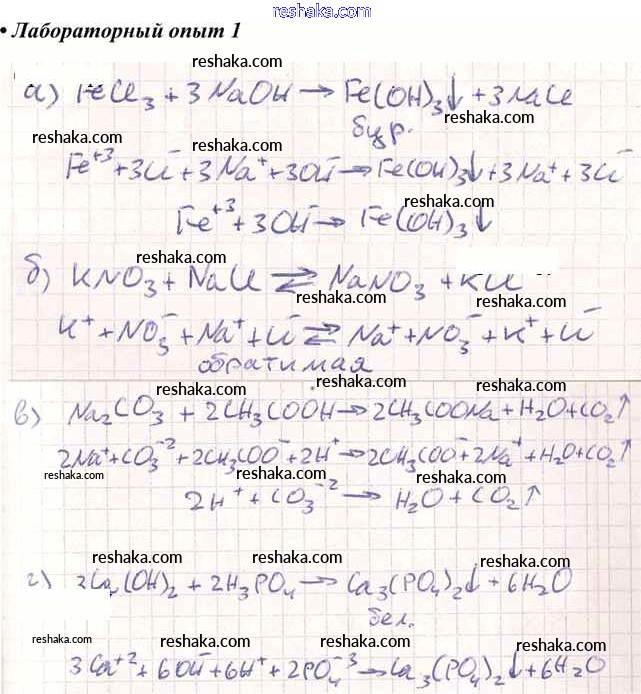 reshaka.com
• Лабораторный опыт 1
reshaka.com
а) FeCl₃ + 3NaOH → Fe(OH)₃↓ + 3NaCl
бур.
reshaka.com
reshaka.com
Fe⁺³ + 3Cl⁻ + 3Na⁺ + 3OH⁻ → Fe(OH)₃↓ + 3Na⁺ + 3Cl⁻
reshaka.com
Fe⁺³ + 3OH⁻ → Fe(OH)₃↓
reshaka.com
б) KNO₃ + NaCl ⇄ NaNO₃ + KCl
reshaka.com
reshaka.com
K⁺ + NO₃⁻ + Na⁺ + Cl⁻ ⇄ Na⁺ + NO₃⁻ + K⁺ + Cl⁻
reshaka.com
обратимая
reshaka.com
reshaka.com
в) Na₂CO₃ + 2CH₃COOH → 2CH₃COONa + H₂O + CO₂↑
reshaka.com
2Na⁺ + CO₃⁻² + 2CH₃COO⁻ + 2H⁺ → 2CH₃COO⁻ + 2Na⁺ + H₂O + CO₂↑
reshaka.com
reshaka.com
reshaka.com
2H⁺ + CO₃⁻² → H₂O + CO₂↑
reshaka.com
reshaka.com
reshaka.com
г) 3Ca(OH)₂ + 2H₃PO₄ → Ca₃(PO₄)₂↓ + 6H₂O
reshaka.com
reshaka.com
бел.
reshaka.com
reshaka.com
reshaka.com
3Ca⁺² + 6OH⁻ + 6H⁺ + 2PO₄⁻³ → Ca₃(PO₄)₂↓ + 6H₂O